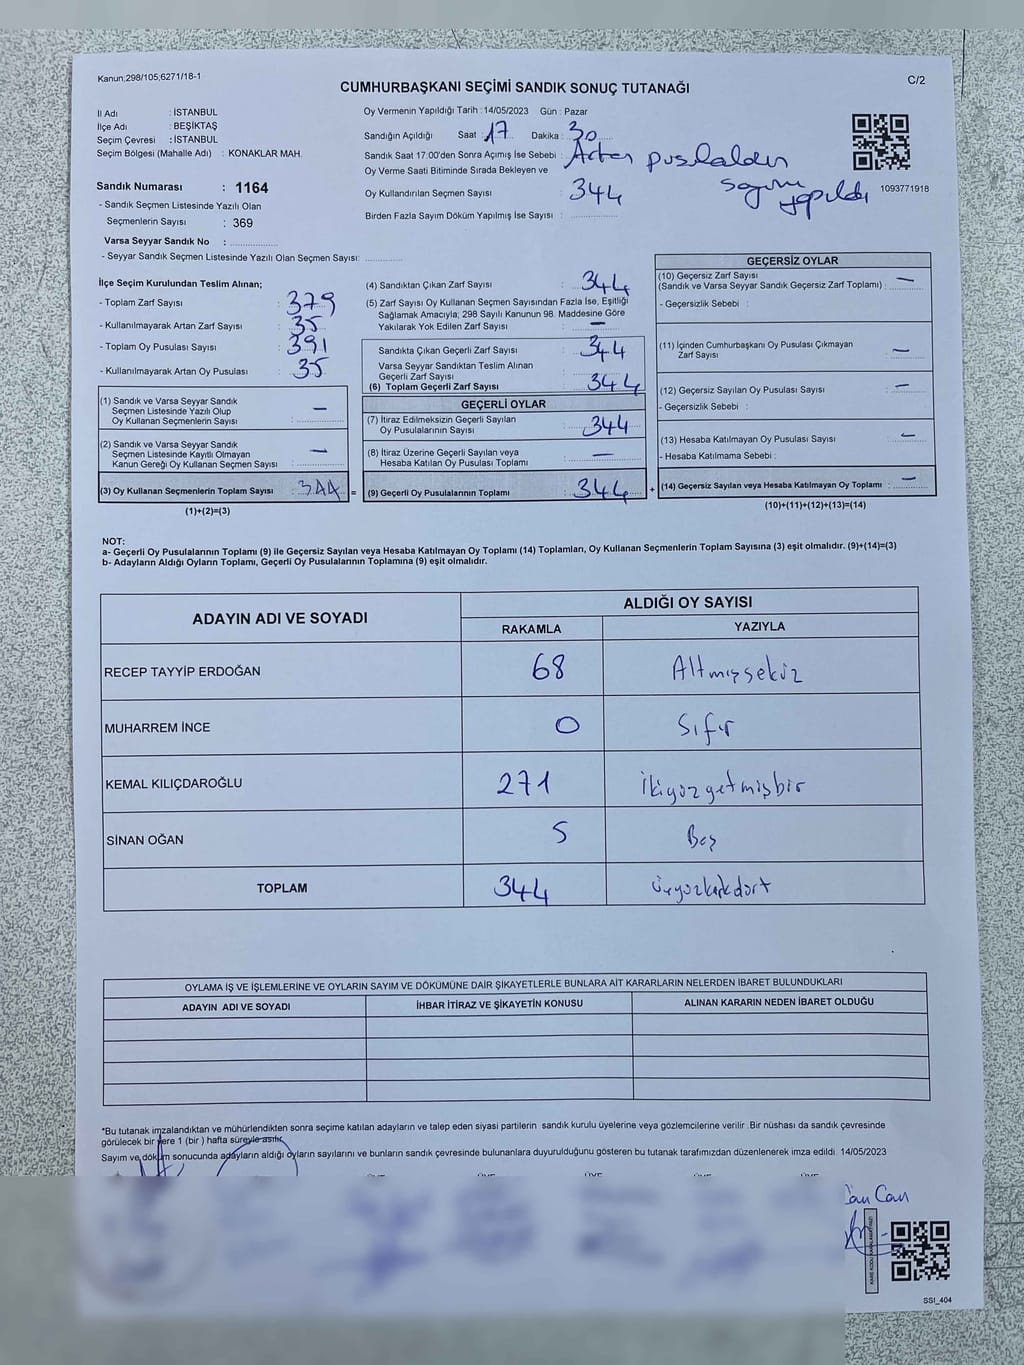 Kanun;298/105;6271/18-1
C/2
CUMHURBAŞKANI SEÇİMİ SANDIK SONUÇ TUTANAĞI
İl Adı : İSTANBUL
İlçe Adı : BEŞİKTAŞ
Seçim Çevresi : İSTANBUL
Seçim Bölgesi (Mahalle Adı) : KONAKLAR MAH.
Sandık Numarası : 1164
- Sandık Seçmen Listesinde Yazılı Olan
Seçmenlerin Sayısı : 369
Varsa Seyyar Sandık No :
- Seyyar Sandık Seçmen Listesinde Yazılı Olan Seçmen Sayısı:
Oy Vermenin Yapıldığı Tarih : 14/05/2023 Gün : Pazar
Sandığın Açıldığı Saat : 17 Dakika : 30
Sandık Saat 17:00'den Sonra Açımış İse Sebebi : Artan pusulaldın
sayımı yapıldı
Oy Verme Saati Bitiminde Sırada Bekleyen ve
Oy Kullandırılan Seçmen Sayısı : 344
Birden Fazla Sayım Döküm Yapılmış İse Sayısı :
1093771918
İlçe Seçim Kurulundan Teslim Alınan;
- Toplam Zarf Sayısı : 379
- Kullanılmayarak Artan Zarf Sayısı : 35
- Toplam Oy Pusulası Sayısı : 391
- Kullanılmayarak Artan Oy Pusulası : 35
(1) Sandık ve Varsa Seyyar Sandık
Seçmen Listesinde Yazılı Olup
Oy Kullanan Seçmenlerin Sayısı : —
(2) Sandık ve Varsa Seyyar Sandık
Seçmen Listesinde Kayıtlı Olmayan
Kanun Gereği Oy Kullanan Seçmen Sayısı : —
(3) Oy Kullanan Seçmenlerin Toplam Sayısı : 344 =
(1)+(2)=(3)
(4) Sandıktan Çıkan Zarf Sayısı : 344
(5) Zarf Sayısı Oy Kullanan Seçmen Sayısından Fazla İse, Eşitliği
Sağlamak Amacıyla; 298 Sayılı Kanunun 98. Maddesine Göre
Yakılarak Yok Edilen Zarf Sayısı : —
Sandıkta Çıkan Geçerli Zarf Sayısı : 344
Varsa Seyyar Sandıktan Teslim Alınan
Geçerli Zarf Sayısı :
(6) Toplam Geçerli Zarf Sayısı : 344
GEÇERLİ OYLAR
(7) İtiraz Edilmeksizin Geçerli Sayılan
Oy Pusulalarının Sayısı : 344
(8) İtiraz Üzerine Geçerli Sayılan veya
Hesaba Katılan Oy Pusulası Toplamı : —
(9) Geçerli Oy Pusulalarının Toplamı : 344 +
GEÇERSİZ OYLAR
(10) Geçersiz Zarf Sayısı
(Sandık ve Varsa Seyyar Sandık Geçersiz Zarf Toplamı) : —
- Geçersizlik Sebebi :
(11) İçinden Cumhurbaşkanı Oy Pusulası Çıkmayan
Zarf Sayısı : —
(12) Geçersiz Sayılan Oy Pusulası Sayısı : —
- Geçersizlik Sebebi :
(13) Hesaba Katılmayan Oy Pusulası Sayısı : —
- Hesaba Katılmama Sebebi :
(14) Geçersiz Sayılan veya Hesaba Katılmayan Oy Toplamı : —
(10)+(11)+(12)+(13)=(14)
NOT:
a- Geçerli Oy Pusulalarının Toplamı (9) ile Geçersiz Sayılan veya Hesaba Katılmayan Oy Toplamı (14) Toplamları, Oy Kullanan Seçmenlerin Toplam Sayısına (3) eşit olmalıdır. (9)+(14)=(3)
b- Adayların Aldığı Oyların Toplamı, Geçerli Oy Pusulalarının Toplamına (9) eşit olmalıdır.
ADAYIN ADI VE SOYADI
ALDIĞI OY SAYISI
RAKAMLA YAZIYLA
RECEP TAYYİP ERDOĞAN 68 Altmışsekiz
MUHARREM İNCE 0 Sıfır
KEMAL KILIÇDAROĞLU 271 İkiyüzyetmişbir
SİNAN OĞAN 5 Beş
TOPLAM 344 üçyüzkırkdört
OYLAMA İŞ VE İŞLEMLERİNE VE OYLARIN SAYIM VE DÖKÜMÜNE DAİR ŞİKAYETLERLE BUNLARA AİT KARARLARIN NELERDEN İBARET BULUNDUKLARI
ADAYIN ADI VE SOYADI İHBAR İTİRAZ VE ŞİKAYETİN KONUSU ALINAN KARARIN NEDEN İBARET OLDUĞU
*Bu tutanak imzalandıktan ve mühürlendikten sonra seçime katılan adayların ve talep eden siyasi partilerin sandık kurulu üyelerine veya gözlemcilerine verilir .Bir nüshası da sandık çevresinde
görülecek bir yere 1 (bir ) hafta süreyle asılır.
Sayım ve döküm sonucunda adayların aldığı oyların sayılarını ve bunların sandık çevresinde bulunanlara duyurulduğunu gösteren bu tutanak tarafımızdan düzenlenerek imza edildi. 14/05/2023
ÜYE ÜYE ÜYE ÜYE ÜYE
Can Can
SSI_404